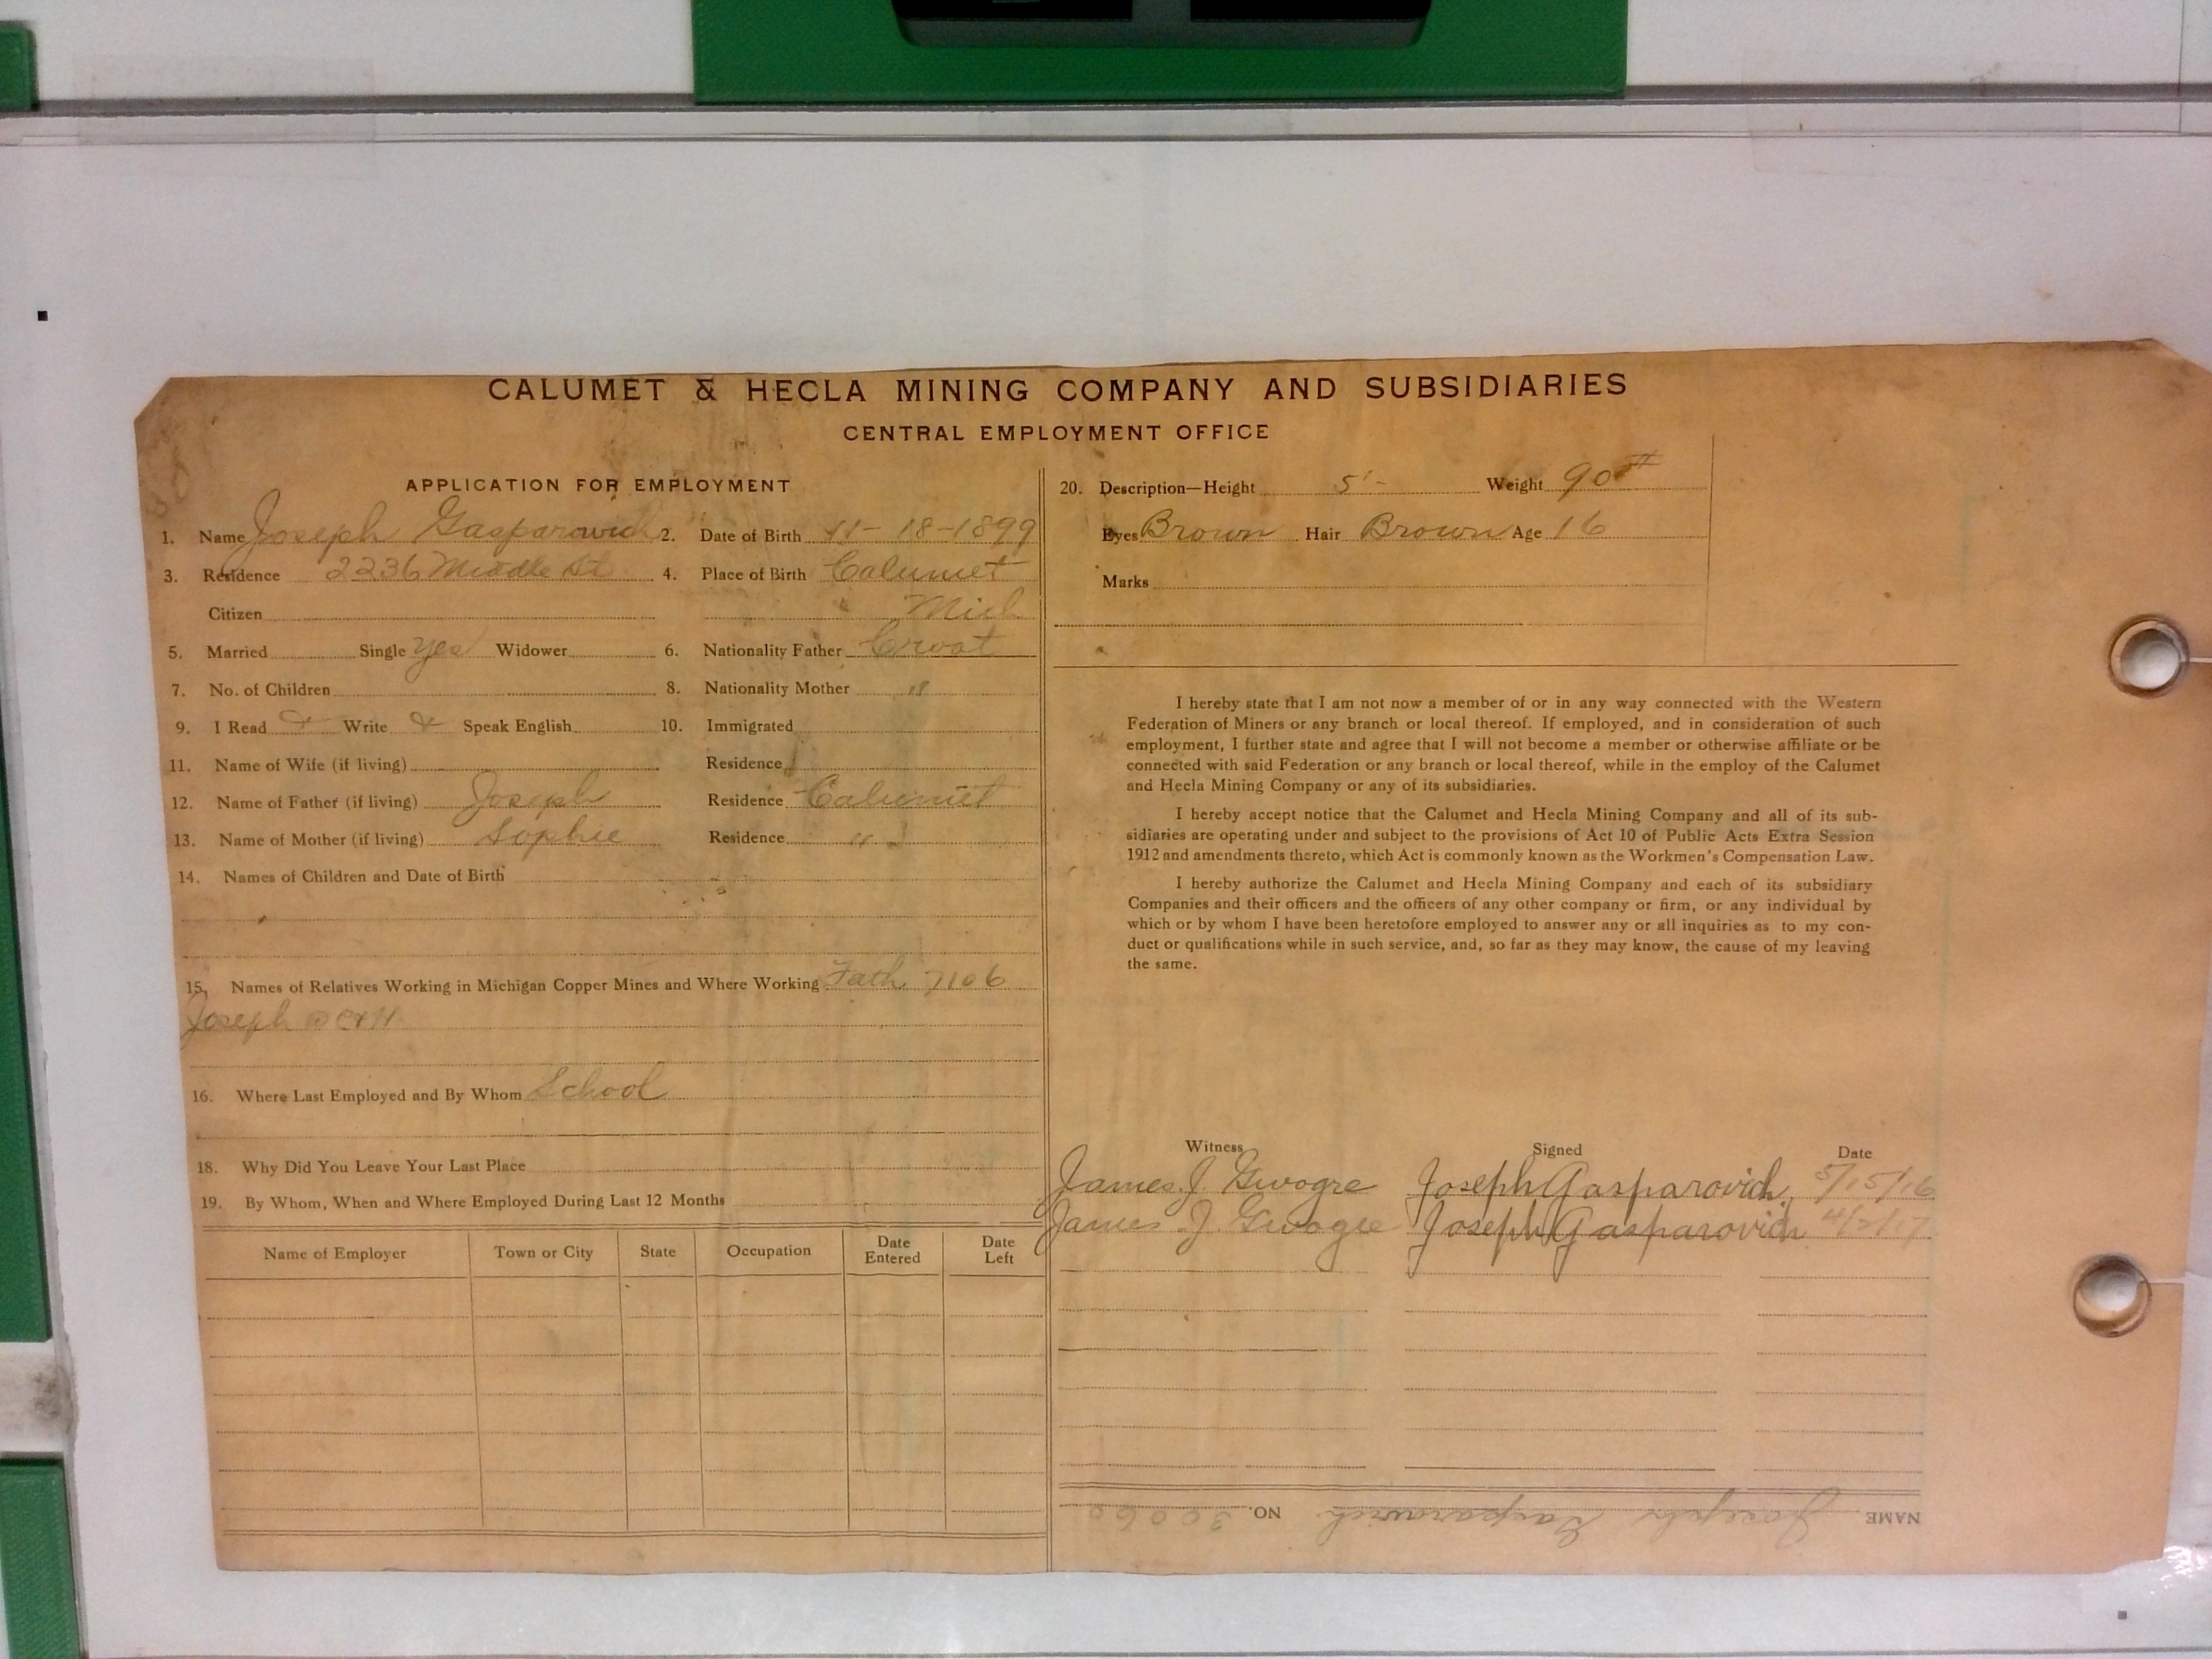 CALUMET & HECLA MINING COMPANY AND SUBSIDIARIES
CENTRAL EMPLOYMENT OFFICE
APPLICATION FOR EMPLOYMENT
1. Name Joseph Gasparovich 2. Date of Birth 11-18-1899
3. Residence 2236 Middle St 4. Place of Birth Calumet
Citizen Mich
5. Married Single Yes Widower 6. Nationality Father Croat
7. No. of Children 8. Nationality Mother "
9. I Read Write Speak English 10. Immigrated
11. Name of Wife (if living) Residence
12. Name of Father (if living) Joseph Residence Calumet
13. Name of Mother (if living) Sophie Residence "
14. Names of Children and Date of Birth
15. Names of Relatives Working in Michigan Copper Mines and Where Working Fath 7106
Joseph C&H
16. Where Last Employed and By Whom School
18. Why Did You Leave Your Last Place
19. By Whom, When and Where Employed During Last 12 Months
Name of Employer Town or City State Occupation Date Entered Date Left
20. Description—Height 5'- Weight 90#
Eyes Brown Hair Brown Age 16
Marks
I hereby state that I am not now a member of or in any way connected with the Western
Federation of Miners or any branch or local thereof. If employed, and in consideration of such
employment, I further state and agree that I will not become a member or otherwise affiliate or be
connected with said Federation or any branch or local thereof, while in the employ of the Calumet
and Hecla Mining Company or any of its subsidiaries.
I hereby accept notice that the Calumet and Hecla Mining Company and all of its sub-
sidiaries are operating under and subject to the provisions of Act 10 of Public Acts Extra Session
1912 and amendments thereto, which Act is commonly known as the Workmen's Compensation Law.
I hereby authorize the Calumet and Hecla Mining Company and each of its subsidiary
Companies and their officers and the officers of any other company or firm, or any individual by
which or by whom I have been heretofore employed to answer any or all inquiries as to my con-
duct or qualifications while in such service, and, so far as they may know, the cause of my leaving
the same.
Witness Signed Date
James J. Gwogre Joseph Gasparovich 5/15/16
James J. Gwogre Joseph Gasparovich 4/2/17
NAME Joseph Gasparovich NO. 30060